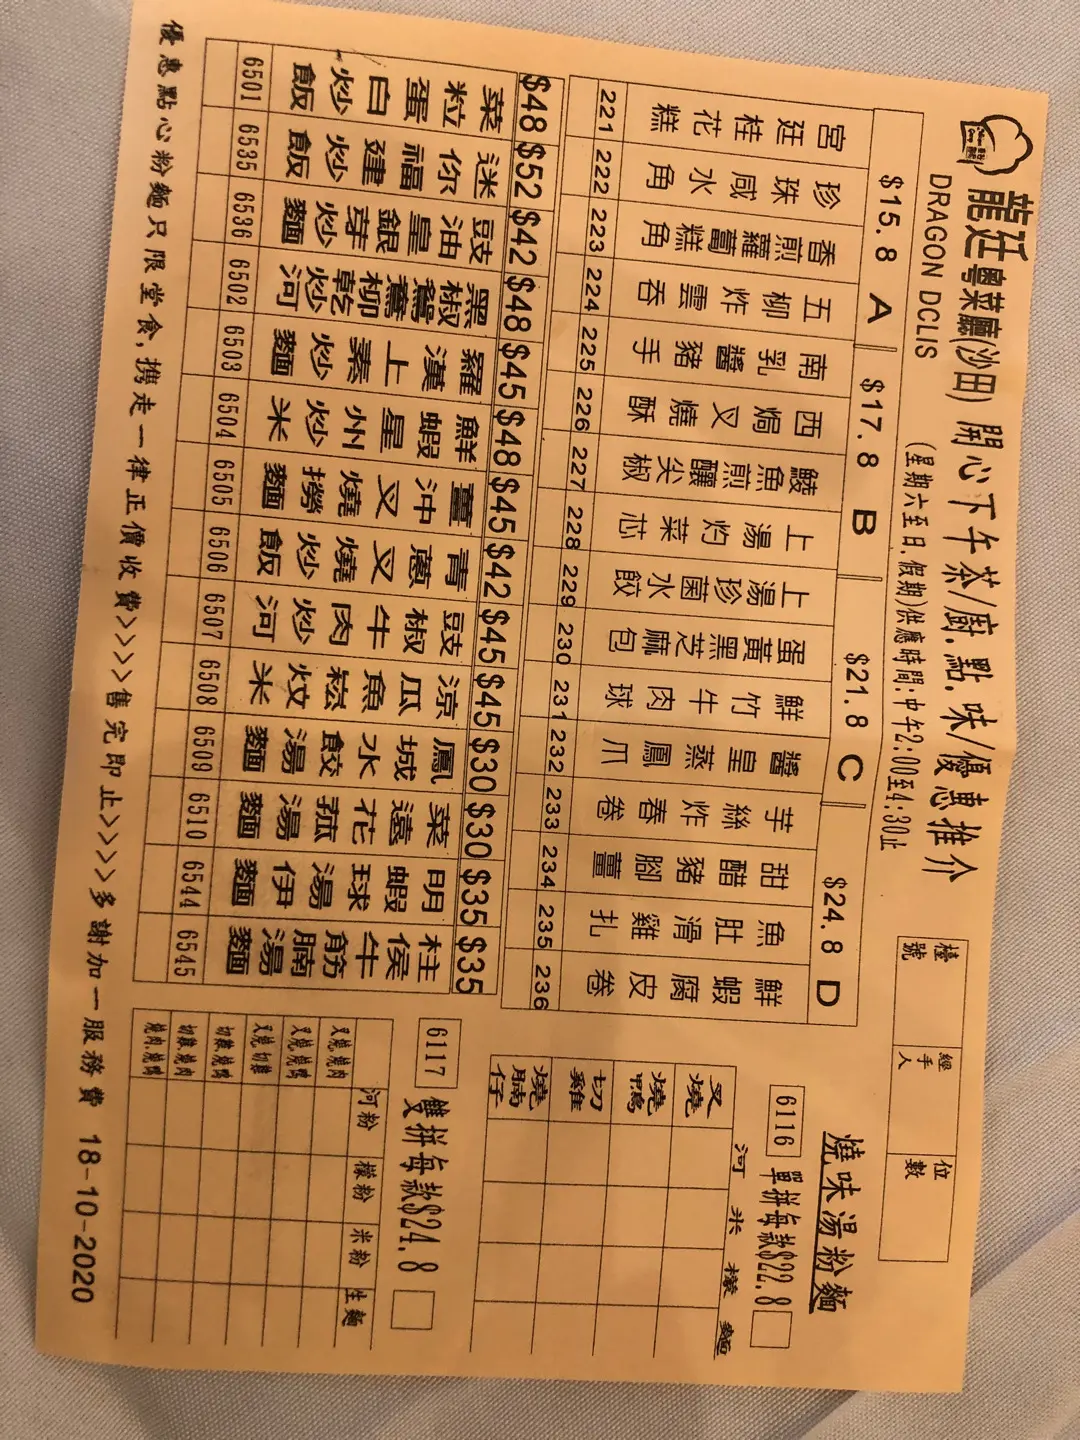 龍廷粵菜廳(沙田) 開心下午茶/廚.點.味/優惠推介
DRAGON DCLIS
(星期六至日.假期)供應時間:中午2:00至4:30止
檯號
經手人
位數
$15.8 A
$17.8 B
$21.8 C
$24.8 D
宮廷桂花糕 221
珍珠咸水角 222
香煎蘿蔔糕角 223
五柳炸雲吞 224
南乳醬豬手 225
西焗叉燒酥 226
鯪魚煎釀尖椒 227
上湯灼菜芯 228
上湯珍菌水餃 229
蛋黃黑芝麻包 230
鮮竹牛肉球 231
醬皇蒸鳳爪 232
芋絲炸春卷 233
甜醋豬腳薑 234
魚肚滑雞扎 235
鮮蝦腐皮卷 236
$48 菜粒蛋白炒飯 6501
$52 迷你福建炒飯 6535
$42 豉油皇銀芽炒麵 6536
$48 黑椒鴛鴦柳乾炒河 6502
$45 羅漢上素炒麵 6503
$48 鮮蝦星州炒米 6504
$45 薑沖叉燒撈麵 6505
$42 青蔥叉燒炒飯 6506
$45 豉椒牛肉炒河 6507
$45 涼瓜魚崧炆米 6508
$30 鳳城水餃湯麵 6509
$30 菜遠花菰湯麵 6510
$35 明蝦球湯伊麵 6544
$35 柱侯牛筋腩湯麵 6545
燒味湯粉麵
6116 單拼每款$22.8
河 米 檬 麵
叉燒
燒鴨
切雞
燒腩仔
6117 雙拼每款$24.8
河粉 檬粉 米粉 生麵
叉燒.燒肉
叉燒.燒鴨
叉燒.切雞
切雞.燒鴨
切雞.燒肉
燒肉.燒鴨
優惠點心粉麵只限堂食,攜走一律正價收費>>>>售完即止>>>>多謝加一服務費 18-10-2020